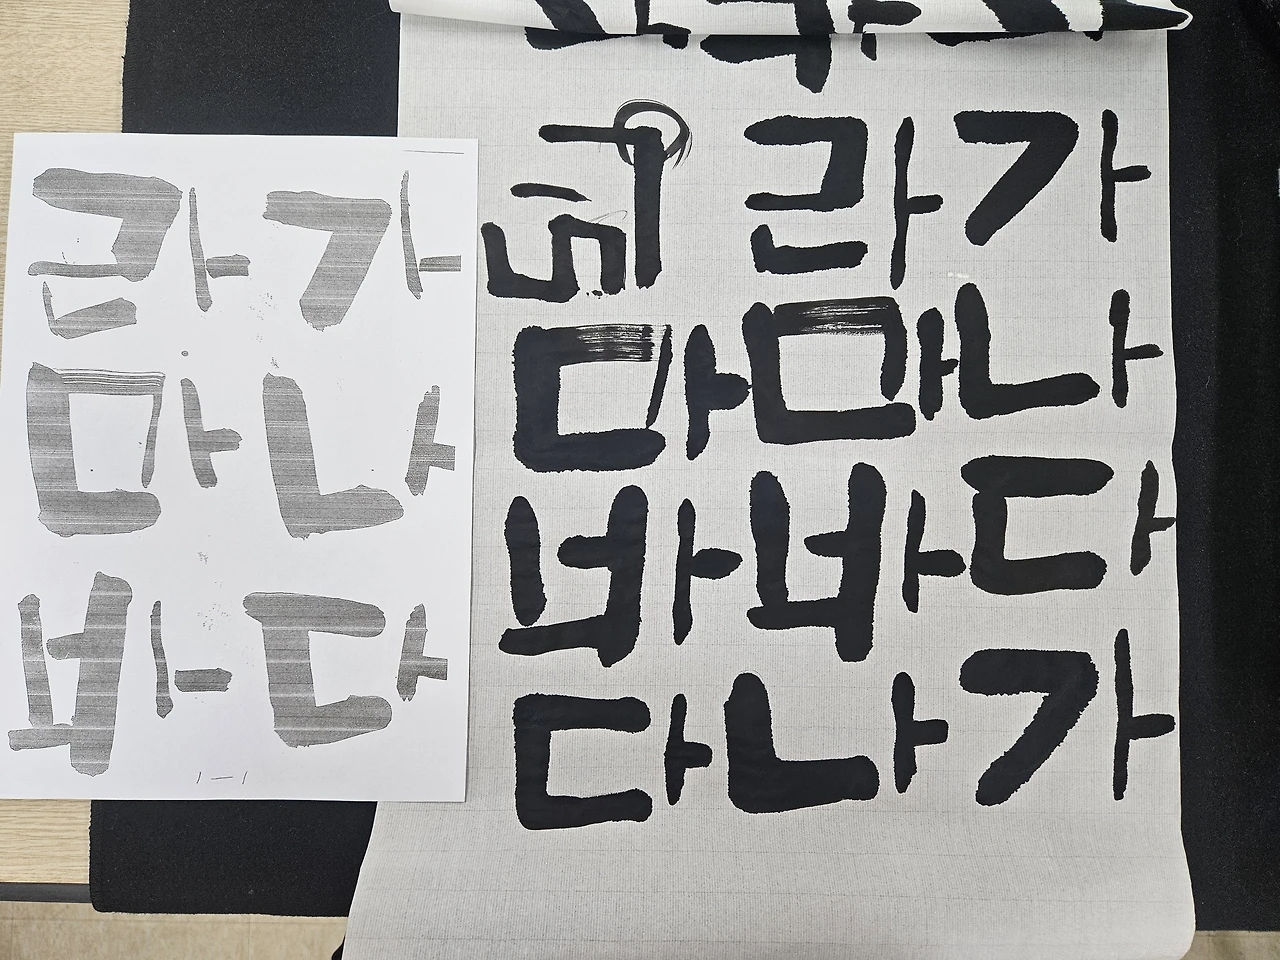 가나다
라마바
1-1
가나다가
라마바나
마바다